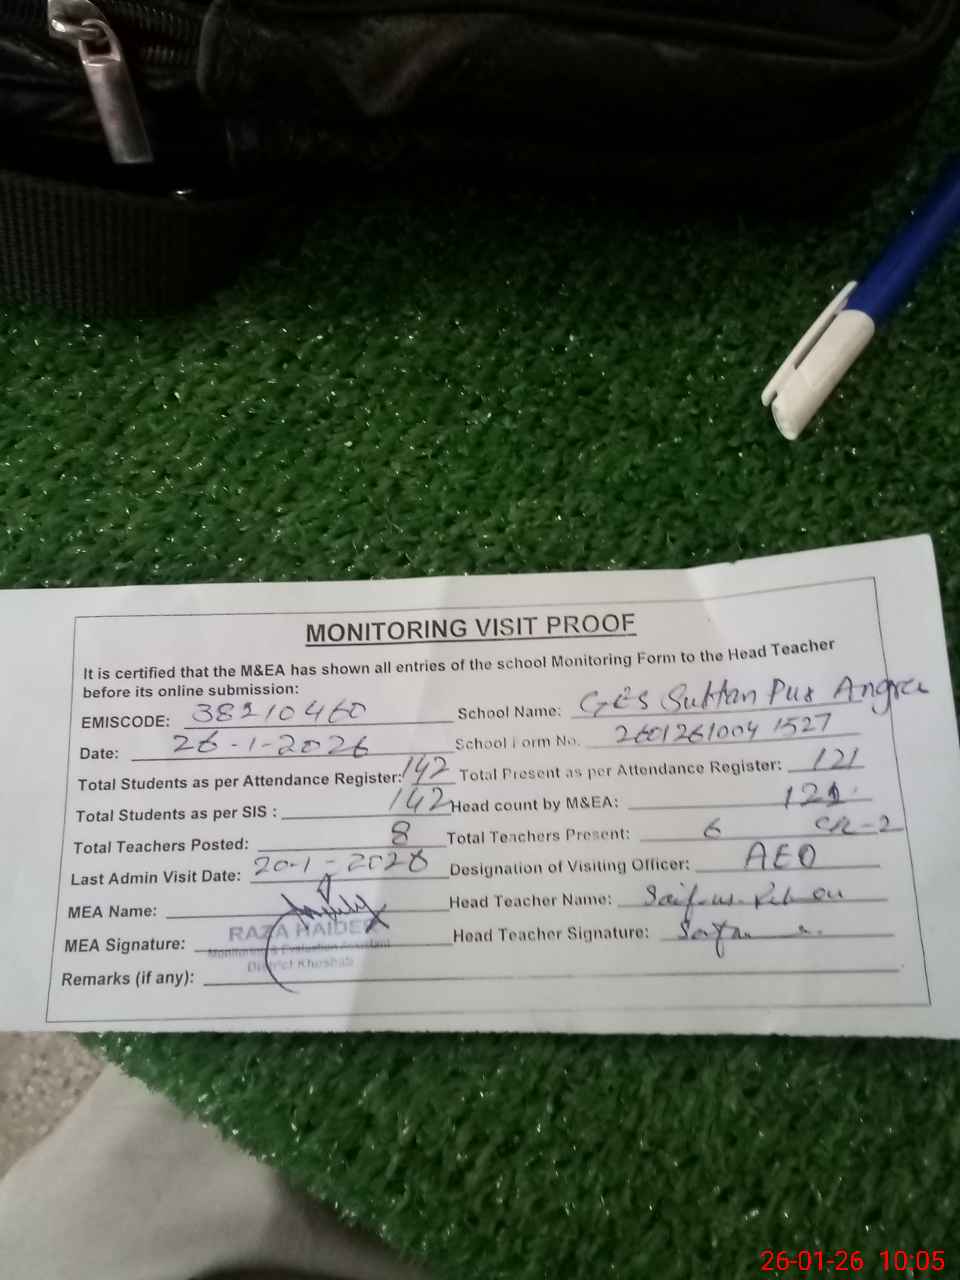 MONITORING VISIT PROOF
It is certified that the M&EA has shown all entries of the school Monitoring Form to the Head Teacher
before its online submission:
EMISCODE: 38210460 School Name: GES Sultan Pur Angra
Date: 26-1-2026 School Form No. 2601261004 1527
Total Students as per Attendance Register: 142 Total Present as per Attendance Register: 121
Total Students as per SIS : 142 Head count by M&EA: 121
Total Teachers Posted: 8 Total Teachers Present: 6 CR-2
Last Admin Visit Date: 20-1-2026 Designation of Visiting Officer: AEO
MEA Name: Head Teacher Name: Saif-ur-Rehman
MEA Signature: RAZA HAIDER Head Teacher Signature:
Monitoring & Evaluation Assistant
District Khushab
Remarks (if any):
26-01-26 10:05